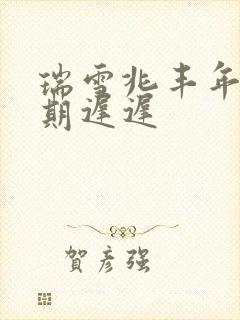 瑞雪兆丰年
期遲遲
賀彥强